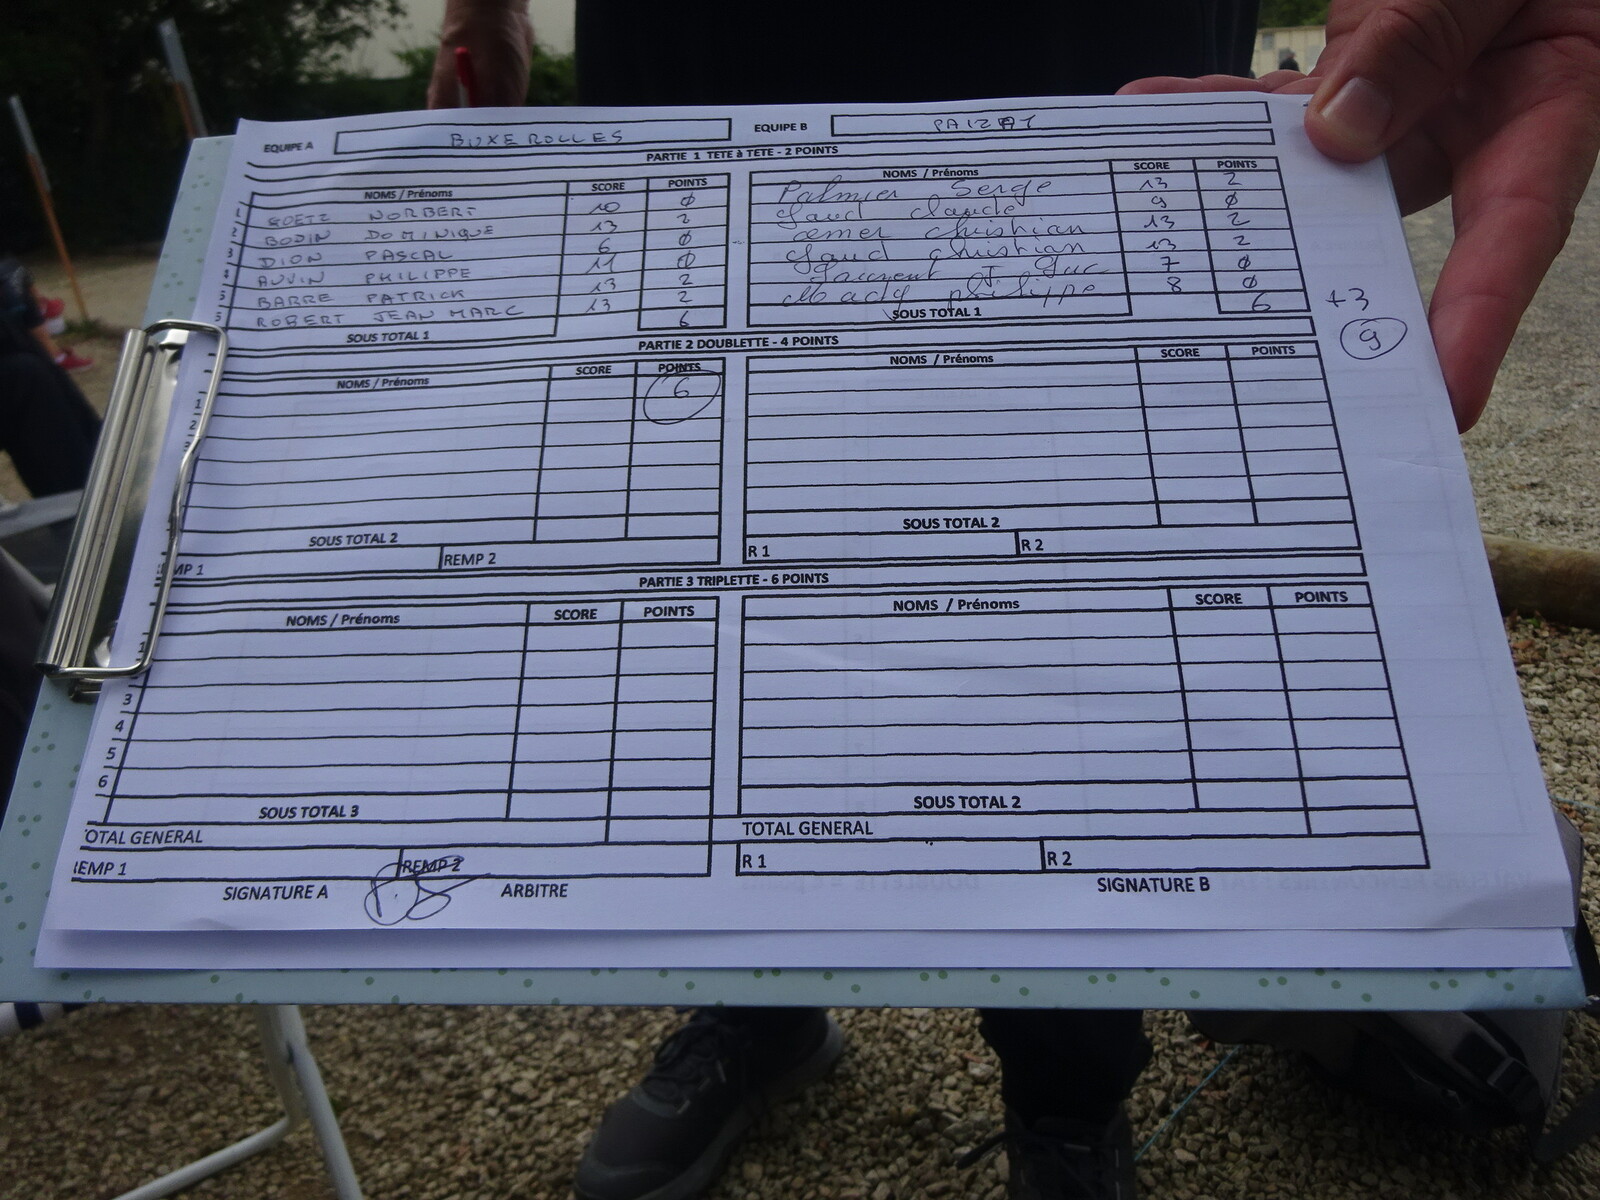 EQUIPE A BUXEROLLES EQUIPE B PAIZAY
PARTIE 1 TETE à TETE - 2 POINTS
NOMS / Prénoms SCORE POINTS
1 GOETZ NORBERT 10 Ø
2 BODIN DOMINIQUE 13 2
3 DION PASCAL 6 Ø
4 AUVIN PHILIPPE 11 Ø
5 BARRE PATRICK 13 2
ROBERT JEAN MARC 13 2
SOUS TOTAL 1 6
NOMS / Prénoms SCORE POINTS
Palmier Serge 13 2
Gaud Claude 9 Ø
christian 13 2
Gaud christian 13 2
Laurent J Luc 7 Ø
Mady philippe 8 Ø
SOUS TOTAL 1 6 +3
9
PARTIE 2 DOUBLETTE - 4 POINTS
NOMS / Prénoms SCORE POINTS
6
1
2
SOUS TOTAL 2
MP 1 REMP 2
NOMS / Prénoms SCORE POINTS
SOUS TOTAL 2
R 1 R 2
PARTIE 3 TRIPLETTE - 6 POINTS
NOMS / Prénoms SCORE POINTS
3
4
5
6
SOUS TOTAL 3
OTAL GENERAL
EMP 1 REMP 2
NOMS / Prénoms SCORE POINTS
SOUS TOTAL 2
TOTAL GENERAL
R 1 R 2
SIGNATURE A ARBITRE SIGNATURE B